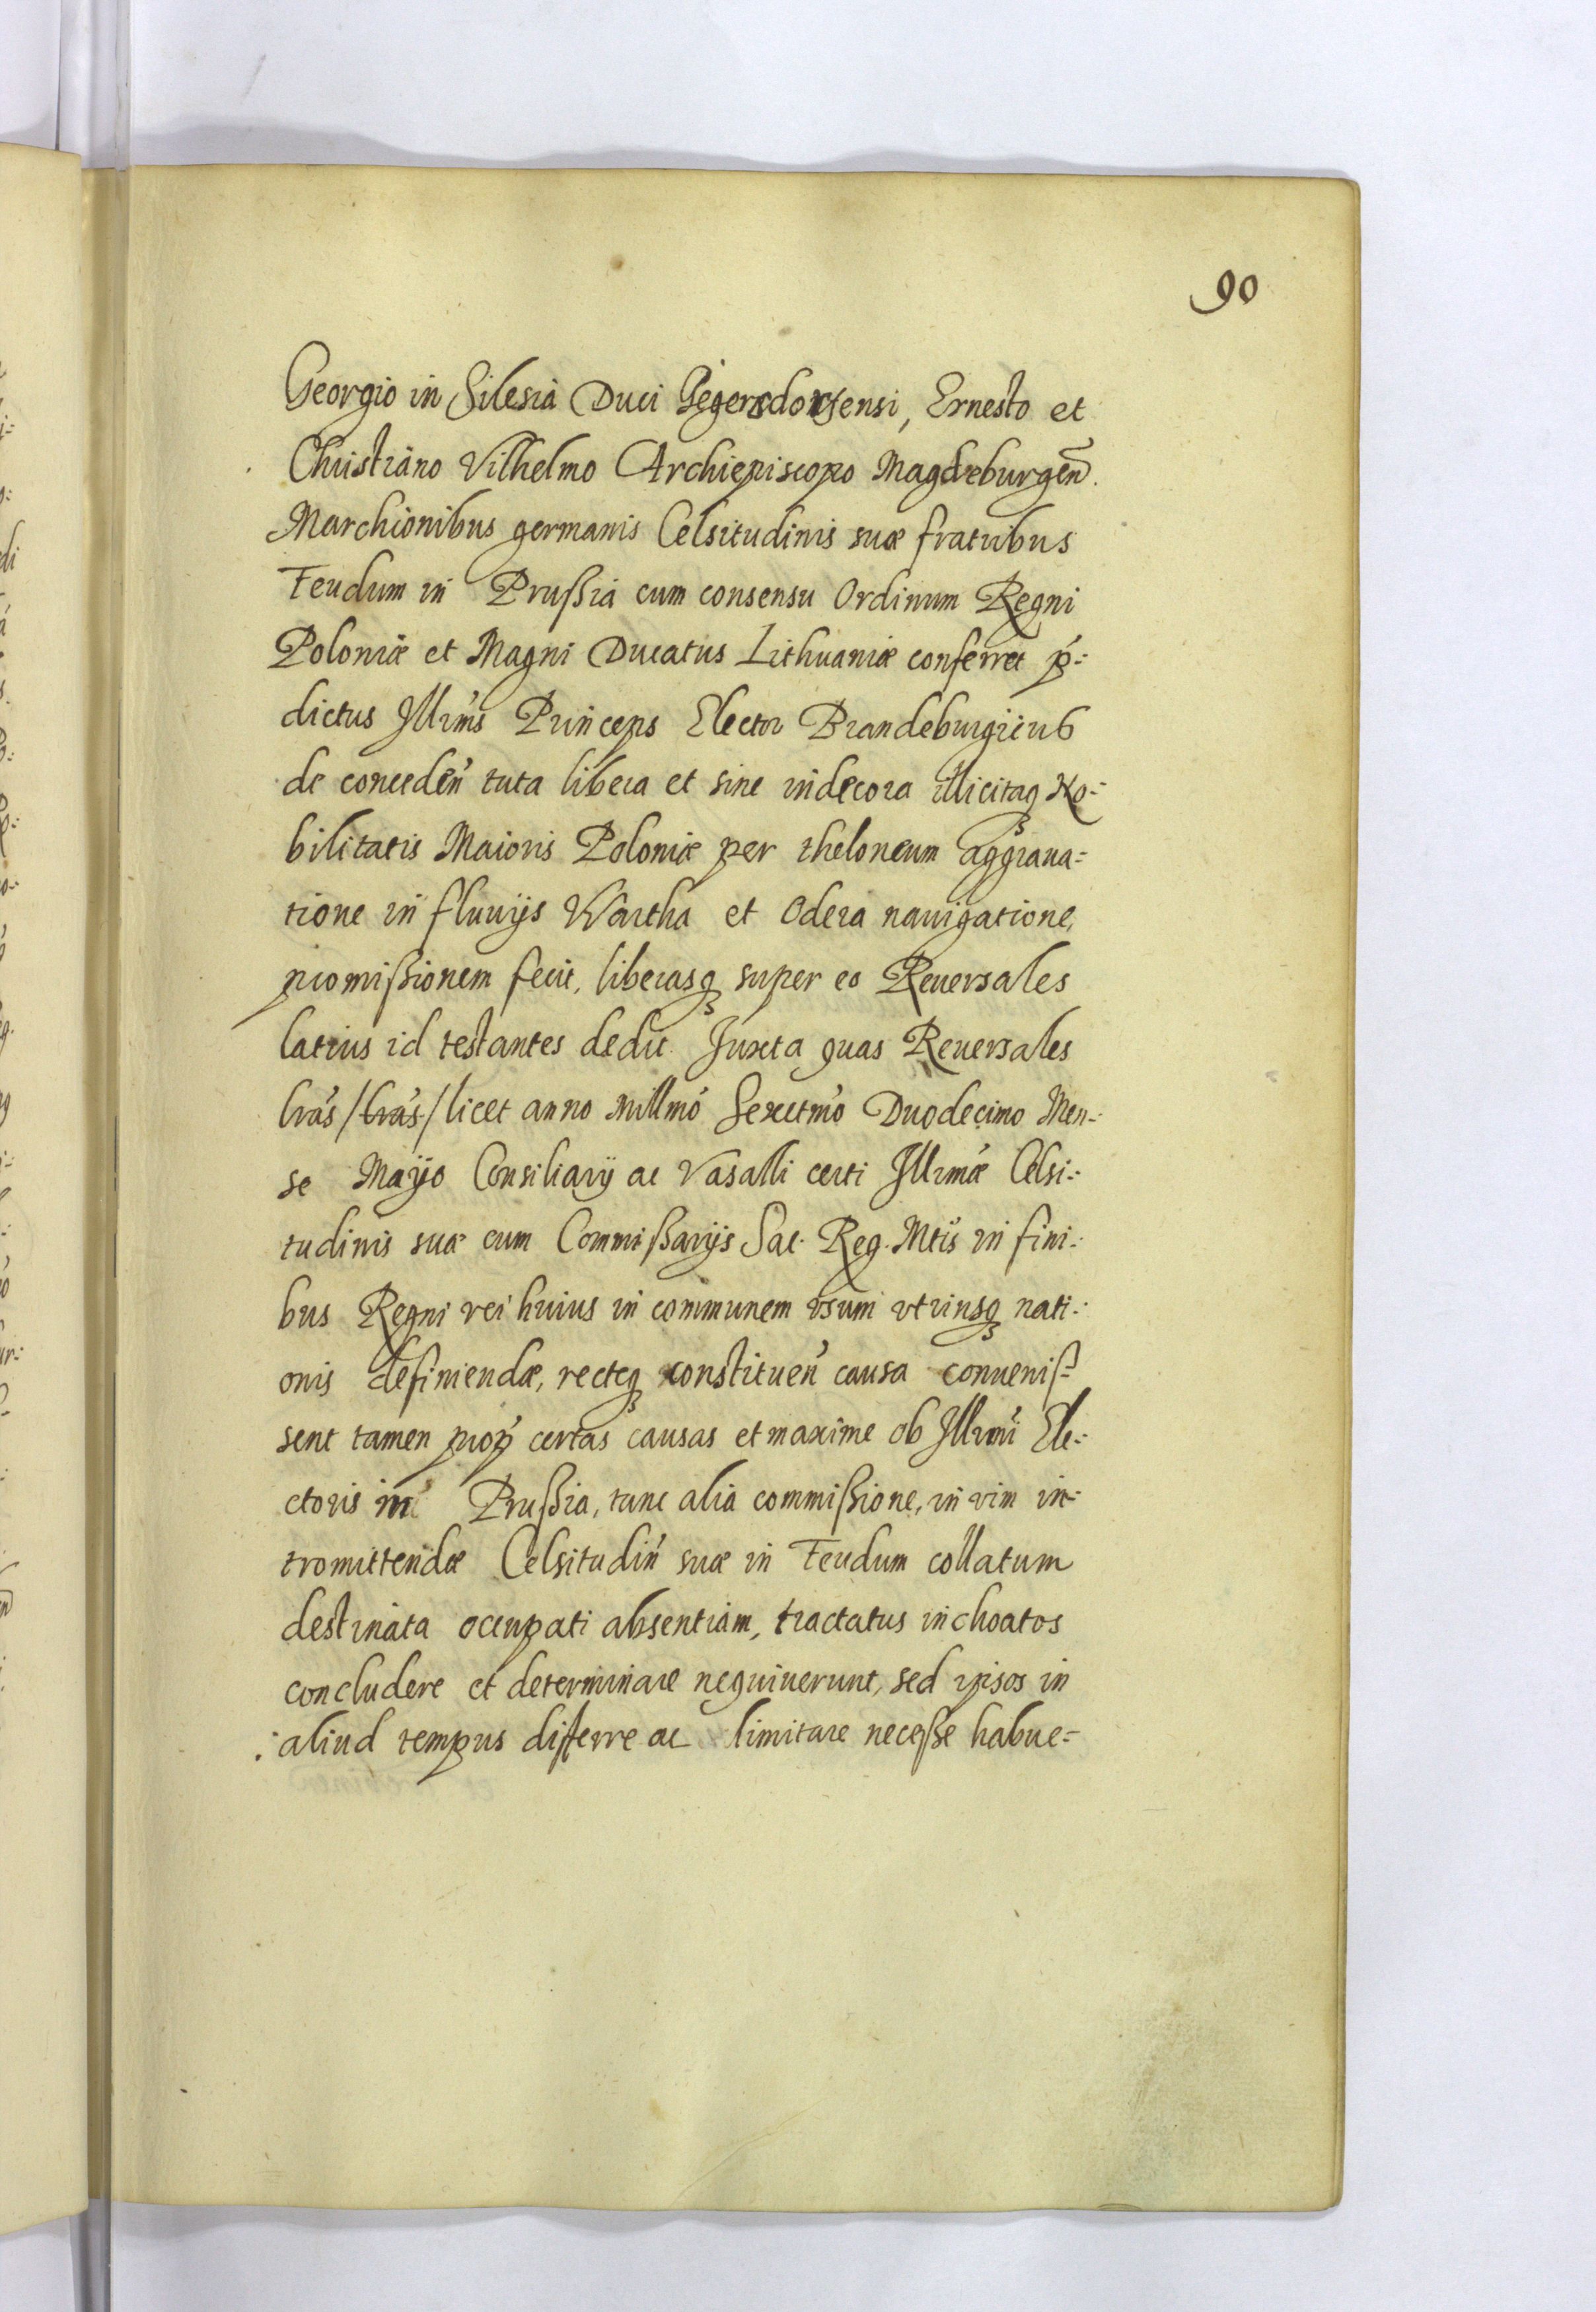 90
Georgio in Silesia Duci Gegersdorfensi, Ernesto et
Christiano Vilhelmo Archiepiscopo Magdeburgen̄.
Marchionibus germanis Celsitudinis suæ fratribus
Feudum in Prußia cum consensu Ordinum Regni
Poloniæ et Magni Ducatus Lithuaniæ conferret ṕ-:
dictus Illrm̃s Princeps Elector Brandeburgicus
de conceden̄ tuta libera et sine indecora illicitaq No-:
bilitatis Maioris Poloniæ per theloneum aggraua=
tione in fluuijs Wartha et Odera nauigatione,
promißionem fecit, liberasq super eo Reuersales
latius id testantes dedit. Iuxta quas Reuersales
lrás /lrás/ licet anno Millmó Sexctmó Duodecimo Men-:
se Mayo Consiliarij ac Vasalli certi Illrmæ Celsi-:
tudinis suæ cum Commißarijs Sac. Reg. Mtis in fini-:
bus Regni rei huius in communem vsum vtriusq nati-:
onis definiendæ, recteq constituen̄ causa conueniſ=
sent tamen prop̄ certas causas et maxime ob Illrmi Ele-:
ctoris in Prußia, tunc alia commißione, in vim in-:
tromittendæ Celsitudin̄ suæ in Feudum collatum
destinata occupati absentiam, tractatus inchoatos
concludere et determinare nequiuerunt, sed ipsos in
aliud tempus differre ac limitare neceße habue=